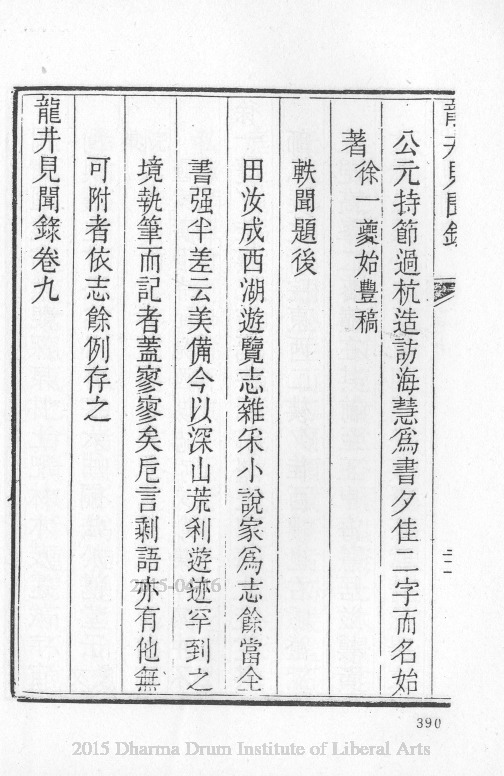 龍井見聞錄
二
公元持節過杭造訪海慧爲書夕佳二字而名始
著徐一夔始豐稿
軼聞題後
田汝成西湖遊覽志雜采小說家爲志餘當全
書强半差云美備今以深山荒刹遊迹罕到之
境執筆而記者蓋寥寥矣卮言剩語亦有他無
可附者依志餘例存之
龍井見聞錄卷九
390
2015-04-16
2015 Dharma Drum Institute of Liberal Arts